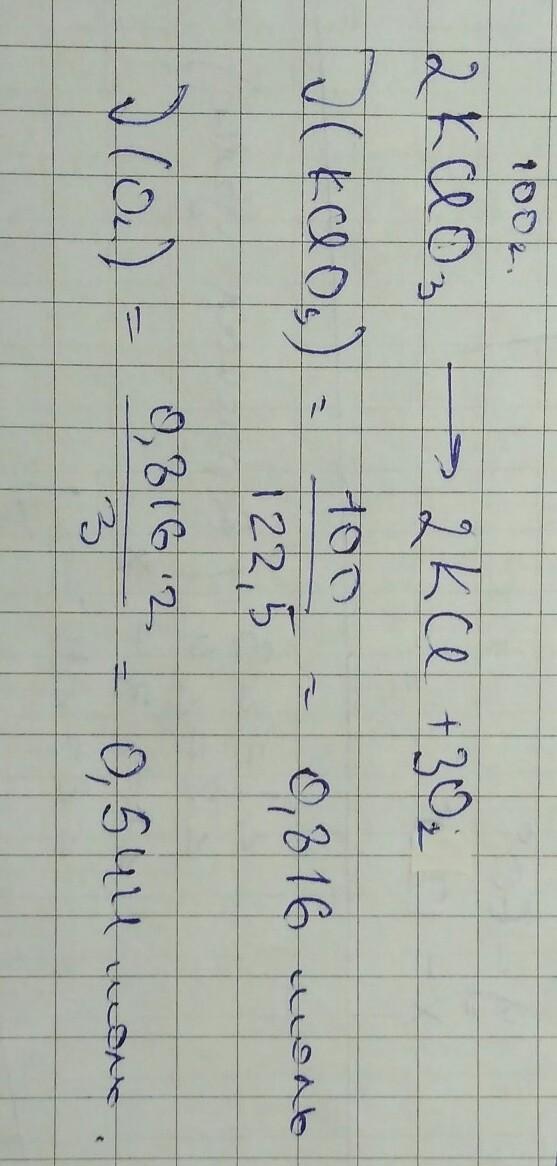 100г.
2KClO₃ → 2KCl + 3O₂
ν(KClO₃) = 100/122,5 = 0,816 моль
ν(O₂) = 0,816·2/3 = 0,544 моль.